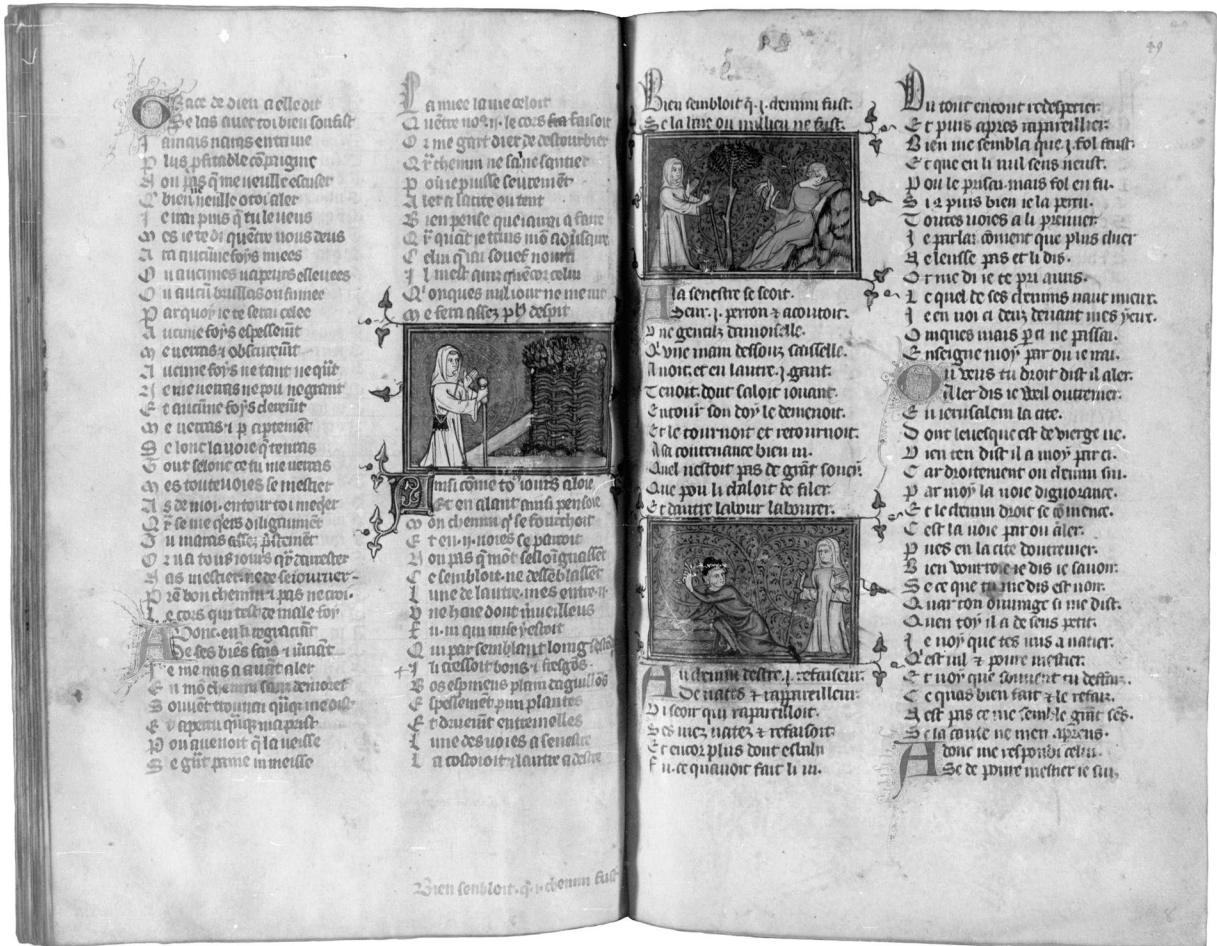 Grace de dieu a elle dit
Se las avec toi bien
Jamais naras
Plus pfitable
Non pas q me veulle escuser
bien veille otoi aler
Je irai puis q tu le veus
Mes ie te di quetre nous deus
Ara aucune foys nuees
Ou aucunes vapeurs eslevees
Ou aucū ou fumee
Par quoy ie te serai celee
Aucune foys espessemt
Me verras & obscuremt
Aucune foys ne tant ne qut
Ne me verras ne pou ne grant
Et aucune foys cleremt
Me verras & aptemēt
Selonc la voie q tenras
Tout selonc ce tu me verras
Mes toutevoies se mestier
As de moi. entour toi
Qr se me qers diligaumēt
Tu maras assez pstement
Or va tous iours
Nas mestier de seiourner
Prē bon chemin & pas ne croi
Le cors qui test de male foy
Adonc en li regraciāt
De ses biēs fais &
Je me mis a avāt aler
En mō chemin sans demorer
Souvēt
Et
Pou avenoit q la veisse
Se gūt paine ni meisse
La nuee la me celoit
Quētre nos. ij. le cors fait faisoit
Or me gart diex de destourbier
Qr chemin ne sai ne santier
Ou ie puisse seuremēt
Aler a haste ou tent
Bien pense que iaurai a faire
Qr quāt ie truis mō adusaire
Celui qui souef nourri
Il mest avis quēcor celui
Qonques nul iour ne me
Me fera assez despit
Ainsi cōme to iours aloie
Et en alant ainsi pensoie
Mon chemin q se fourchoit
Et en. ij. voies se partoit
Non pas q mōt sesloignassēt
Ce sembloit. ne dessēblassēt
Lune de lautre. mes entre. ij.
Une haie dont mveilleus
Fu. ui qui mise y estoit
Qui par semblant long
Il cressoit bois &
Bos espineus plain daguillōs
Espessemēt plantes
Et druemt entremelles
Lune des voies a senestre
La costoioit & lautre a destre
Bien senbloit. q. i. chemin fust
49
Bien sembloit q. i. chemin fust.
Se la haie ou milieu ne fust.
A la senestre se seoit.
Seur. j. perron & acoutoit.
Une gentilz damoiselle.
Qune main dessouz saisselle.
Avoit. et en lautre. j. gant.
Tenoit. dont saloit iouant.
Entour son doy le demenoit.
Et le tournoit et retournoit.
A sa contenance bien vi.
Quel nestoit pas de grāt soucy.
Que pou li chaloit de filer.
Et dautre labour labourer.
Au chemin destre. j. refaiseur.
De nates & rappareilleur.
Vi seoir qui rapareilloit.
Ses viez natez & refaisoit.
Et encor plus dont esbahi
Fu. ce quavoit fait li vi.
Du tout encont redespecier.
Et puis apres rapareillier.
Bien me sembla que. j. fol feust.
Et que en li nul sens neust.
Pou le prisai. mais fol en fu.
Si q puis bien ie la perceu.
Toutes voies a li premier
Je parlai. cōment que plus chier
Neleusse pas et li dis.
Or me di ie te pri amis.
Lequel de ses chemins vaut mieux.
Je en voi ci deuz devant mes yeux.
Onques mais p ci ne passai.
Enseigne moy par ou ie irai.
Ou veus tu droit dist il aler.
Aler dis ie veil outremer.
En ierusalem la cite.
Dont levesque est de vierge ne.
Vien ten dist il a moy par ci.
Car droitement ou chemin sui.
Par moy la voie dignorance.
Et le chemin droit se cōmence.
Cest la voie par ou aler.
Pues en la cite doutremer.
Bien vourroie ie dis ie savoir.
Se ce que tu me dis est voir.
Quar ton ouvrage si me dist.
Quen toy il a de sens petit.
Je voy que tes mis a natier.
Quest vil & povre mestier.
Et voy que souvent tu deffais.
Ce quas bien fait & le refaiz.
Nest pas ce me semble grāt sēs.
Se la cause ne men aprens.
Adonc me respondi celui.
Se de povre mestier ie sui.